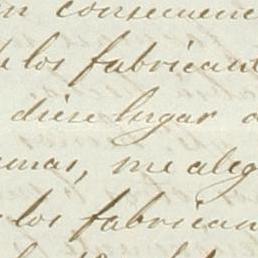 n consecuenc
los fabricant
diese lugar a
emas, me aleg
los fabrican